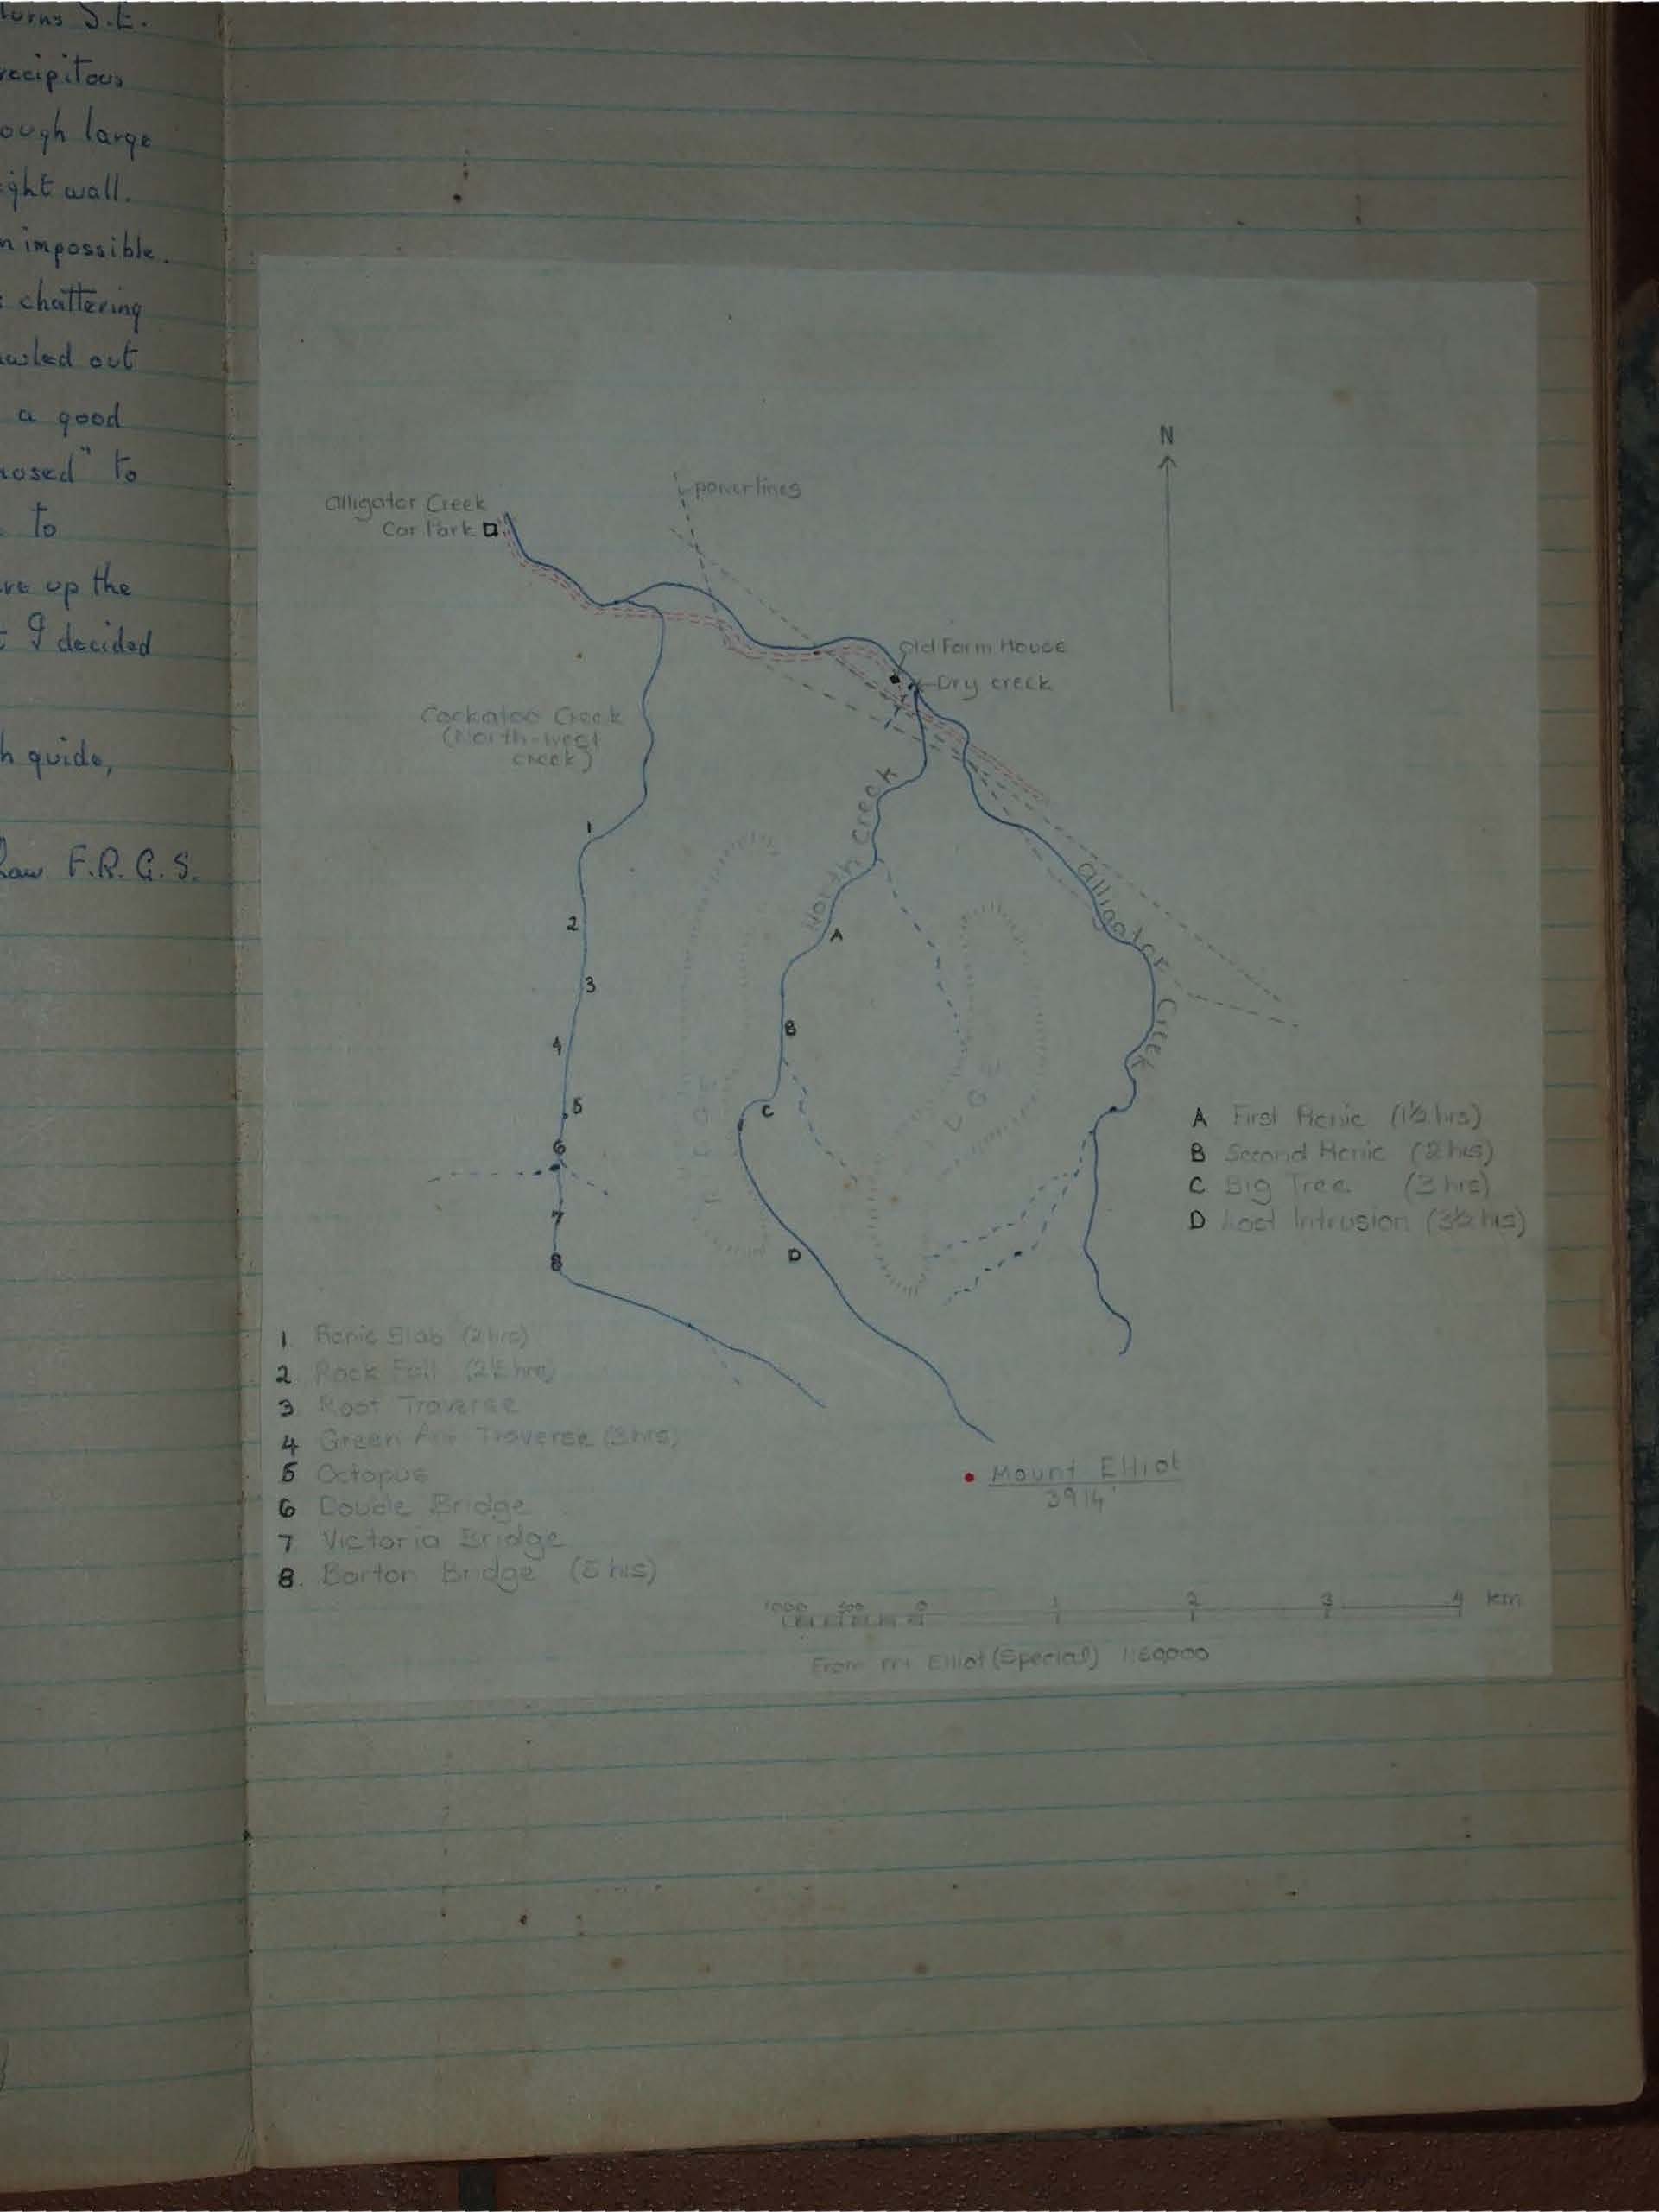 turns S.E.
recipitous
ough large
ight wall.
n impossible.
chattering
awled out
a good
nosed" to
to
ve up the
I decided
h guide,
Law F.R.G.S.
N
powerlines
Alligator Creek
Car Park
Old Farm House
Dry creek
Cockatoo Creek
(North-west
creek)
North Creek
Alligator Creek
1
2
3
4
5
6
7
8
A
B
C
D
RIDGE
A First Picnic (1½ hrs)
B Second Picnic (2 hrs)
C Big Tree (3 hrs)
D Last Intrusion (3½ hrs)
1 Picnic Slab (2 hrs)
2 Rock Fall (2½ hrs)
3 Root Traverse
4 Green Ant Traverse (3 hrs)
5 Octopus
6 Double Bridge
7 Victoria Bridge
8. Barton Bridge (5 hrs)
Mount Elliot
3914'
1000 500 0 1 2 3 4 km
From Mt Elliot (Special) 1:60,000